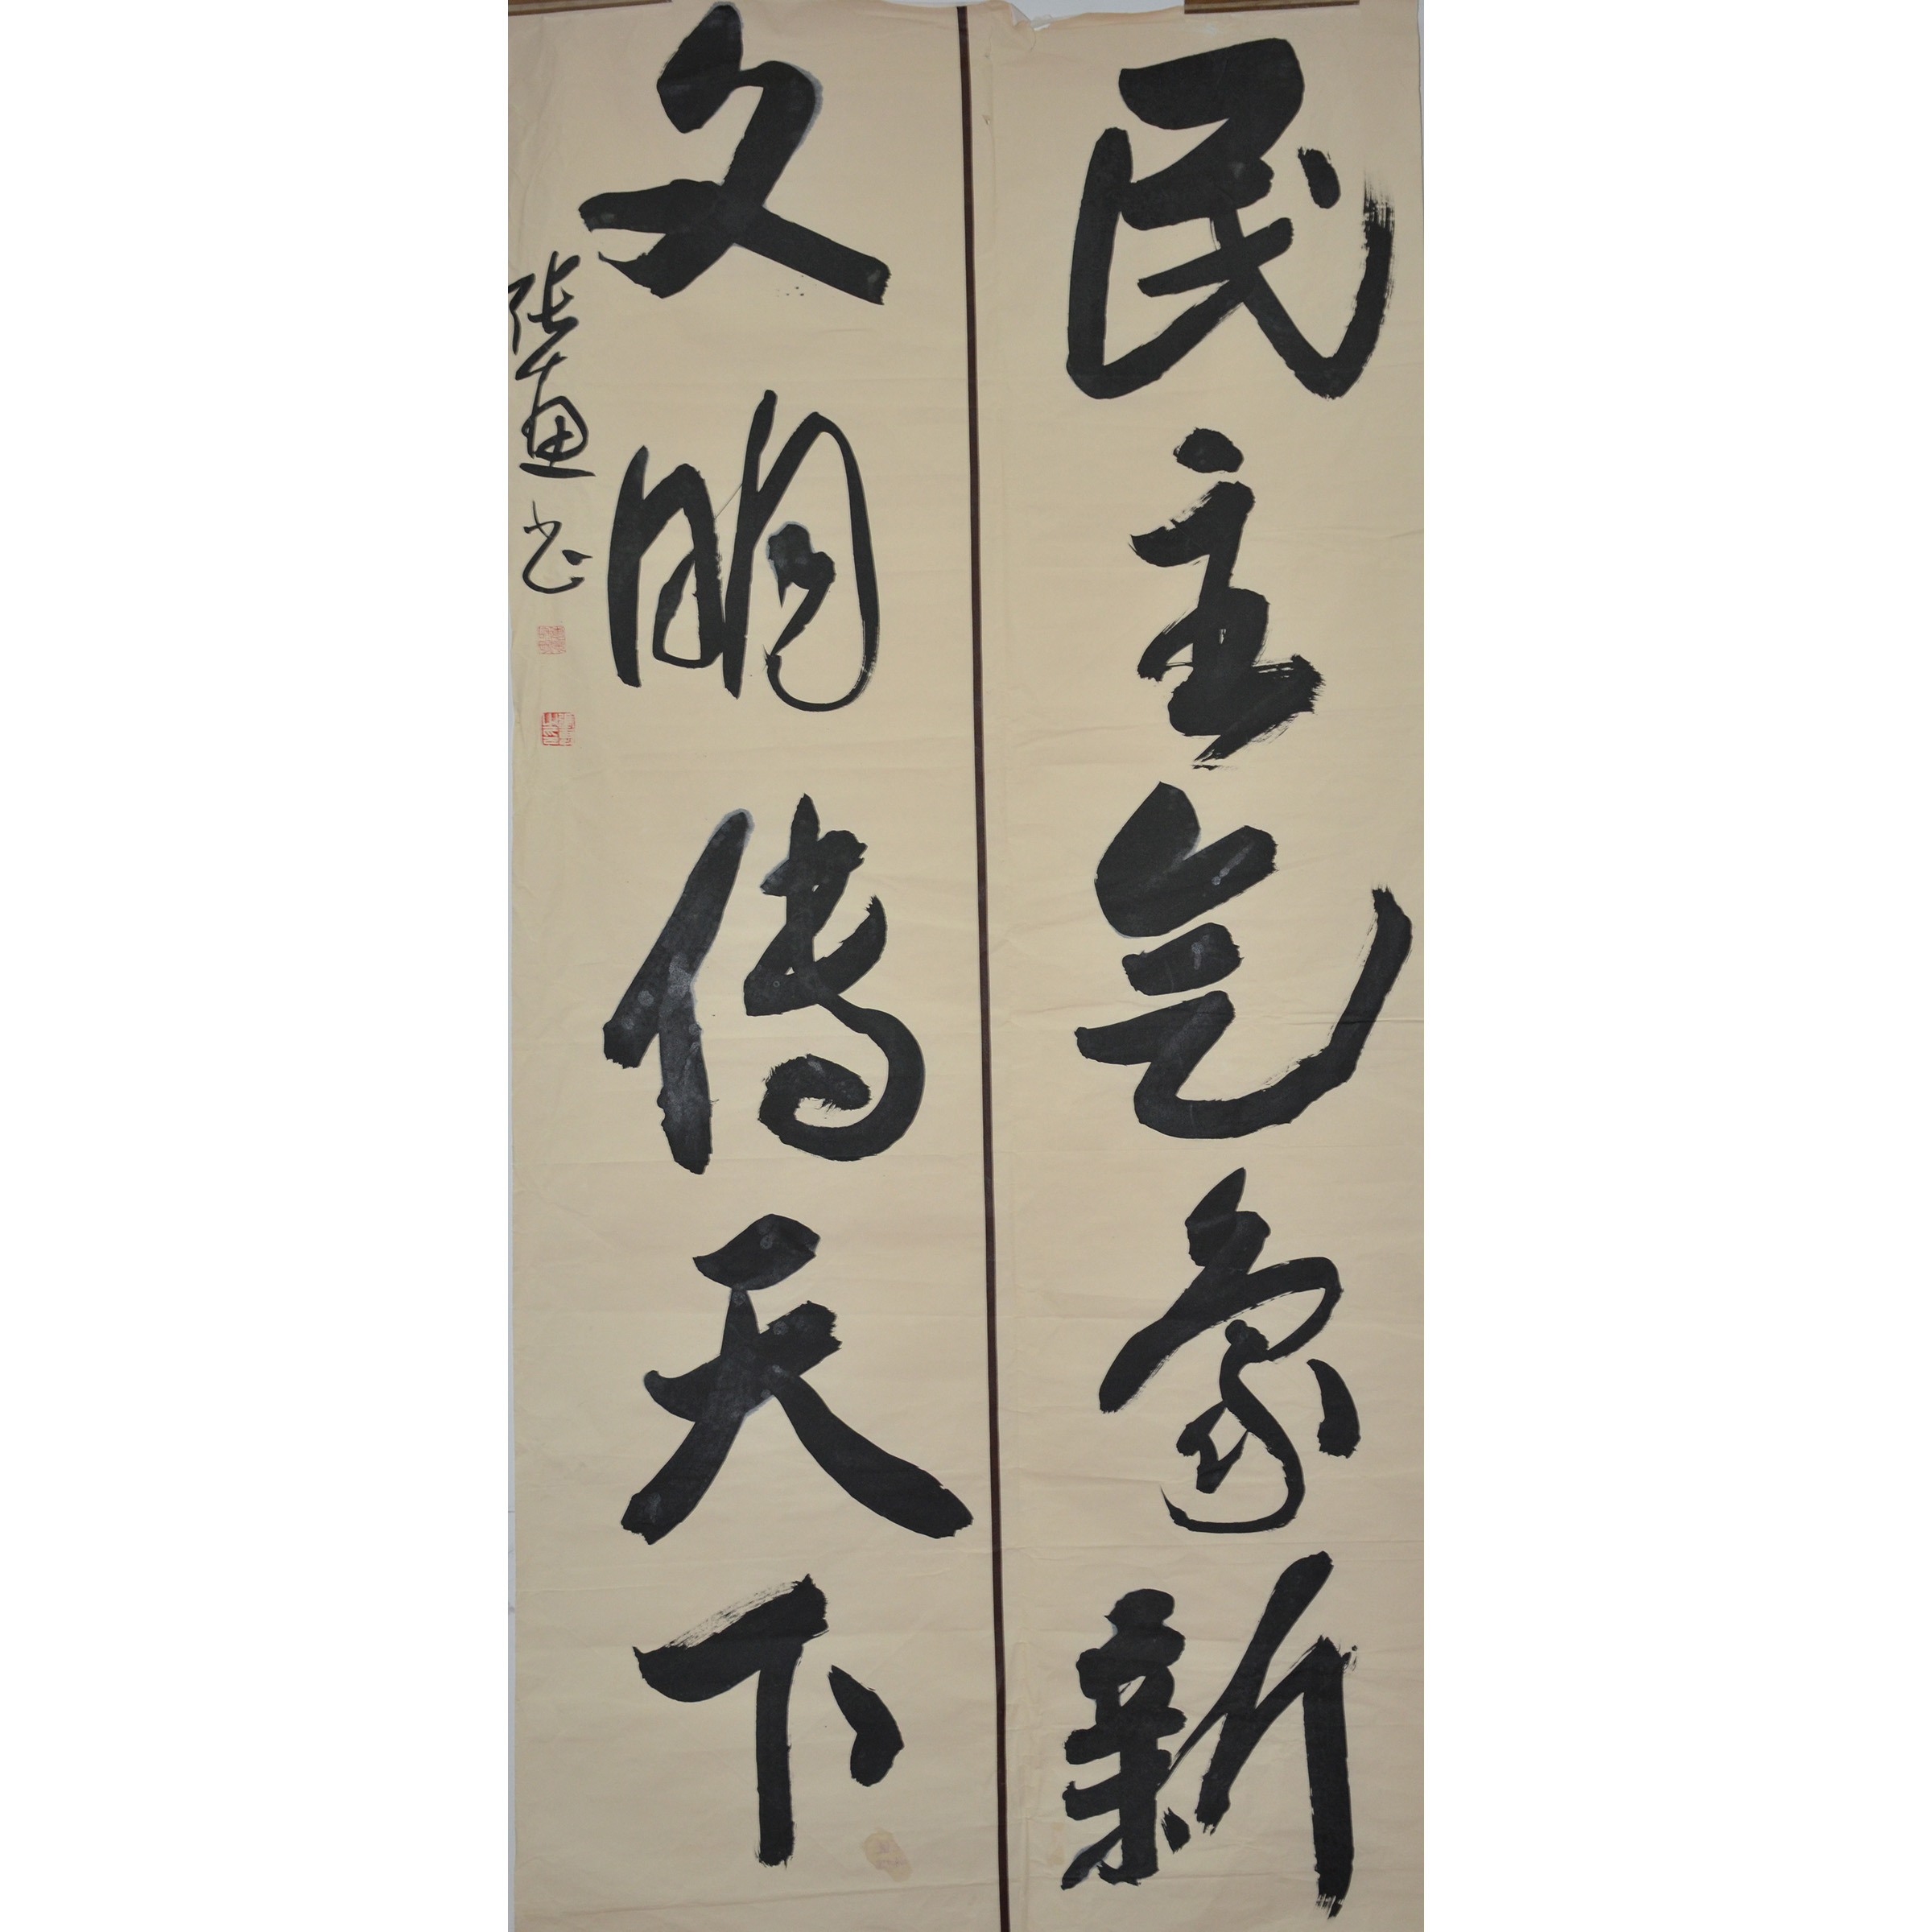 民主气象新
文明传天下
张画书